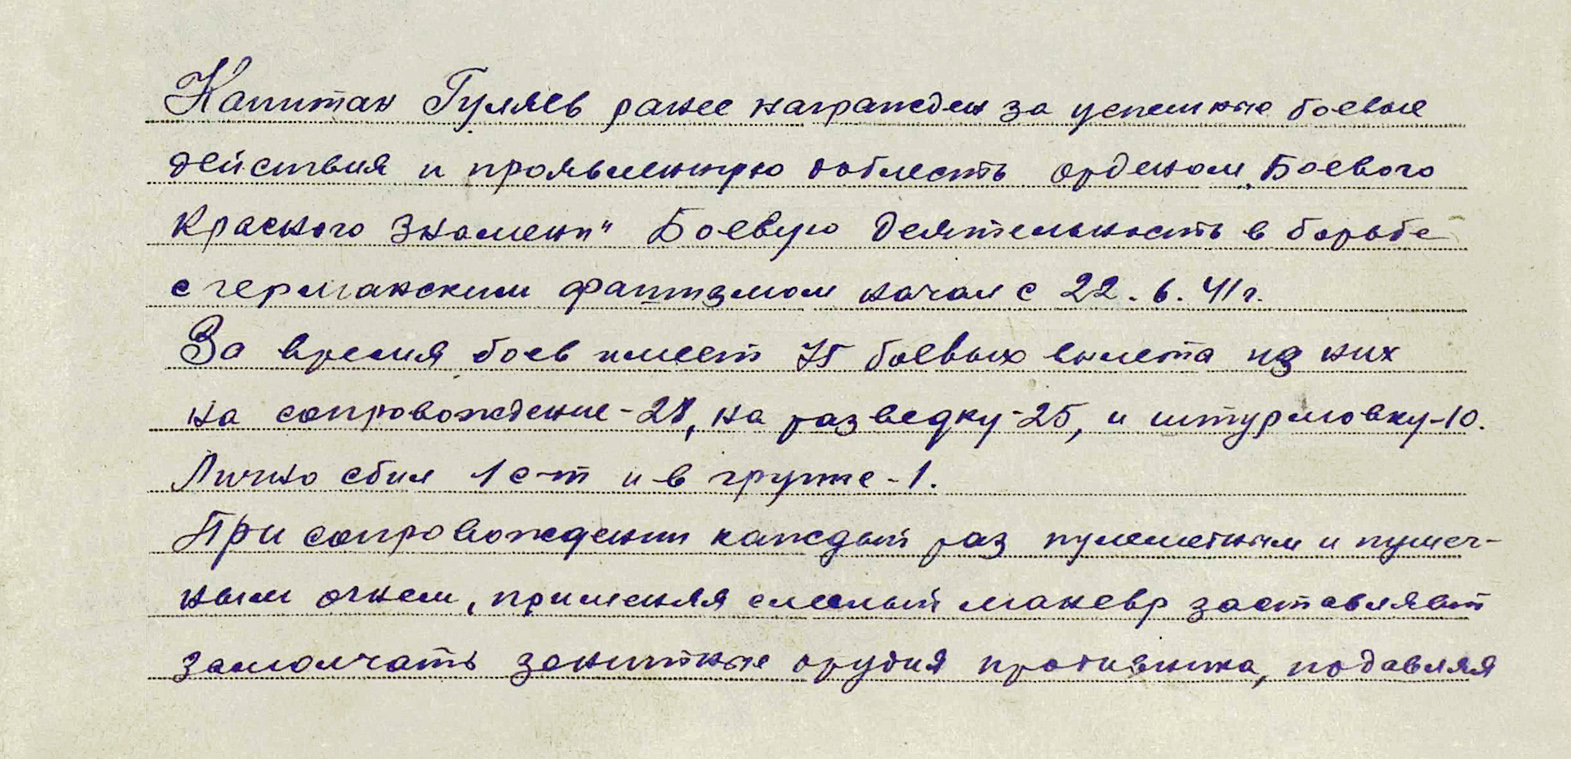 Капитан Гуляев ранее награжден за успешные боевые
действия и проявленную доблесть орденом „Боевого
Красного Знамени" Боевую деятельность в борьбе
с германским фашизмом начал с 22.6.41г.
За время боев имеет 75 боевых вылета из них
на сопровождение-28, на разведку-25, и штурмовку-10.
Лично сбил 1 с-т и в группе-1.
При сопровождении каждый раз пулеметным и пушеч-
ным огнем, применяя смелый маневр заставляет
замолчать зенитные орудия противника, подавляя